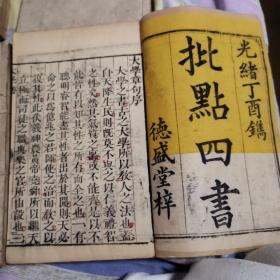 光緒丁酉鐫
批點四書
德盛堂梓
大學章句序
大學之書古之大學所以教人之法也蓋
自天降生民則既莫不與之以仁義禮智
之性矣然其氣質之稟或不能齊是以不
能皆有以知其性之所有而全之也一有
聰明睿智能盡其性者出於其間則天必
命之以為億兆之君師使之治而教之以
復其性此伏羲神農黃帝堯舜所以繼天
立極而司徒之職典樂之官所由設也三